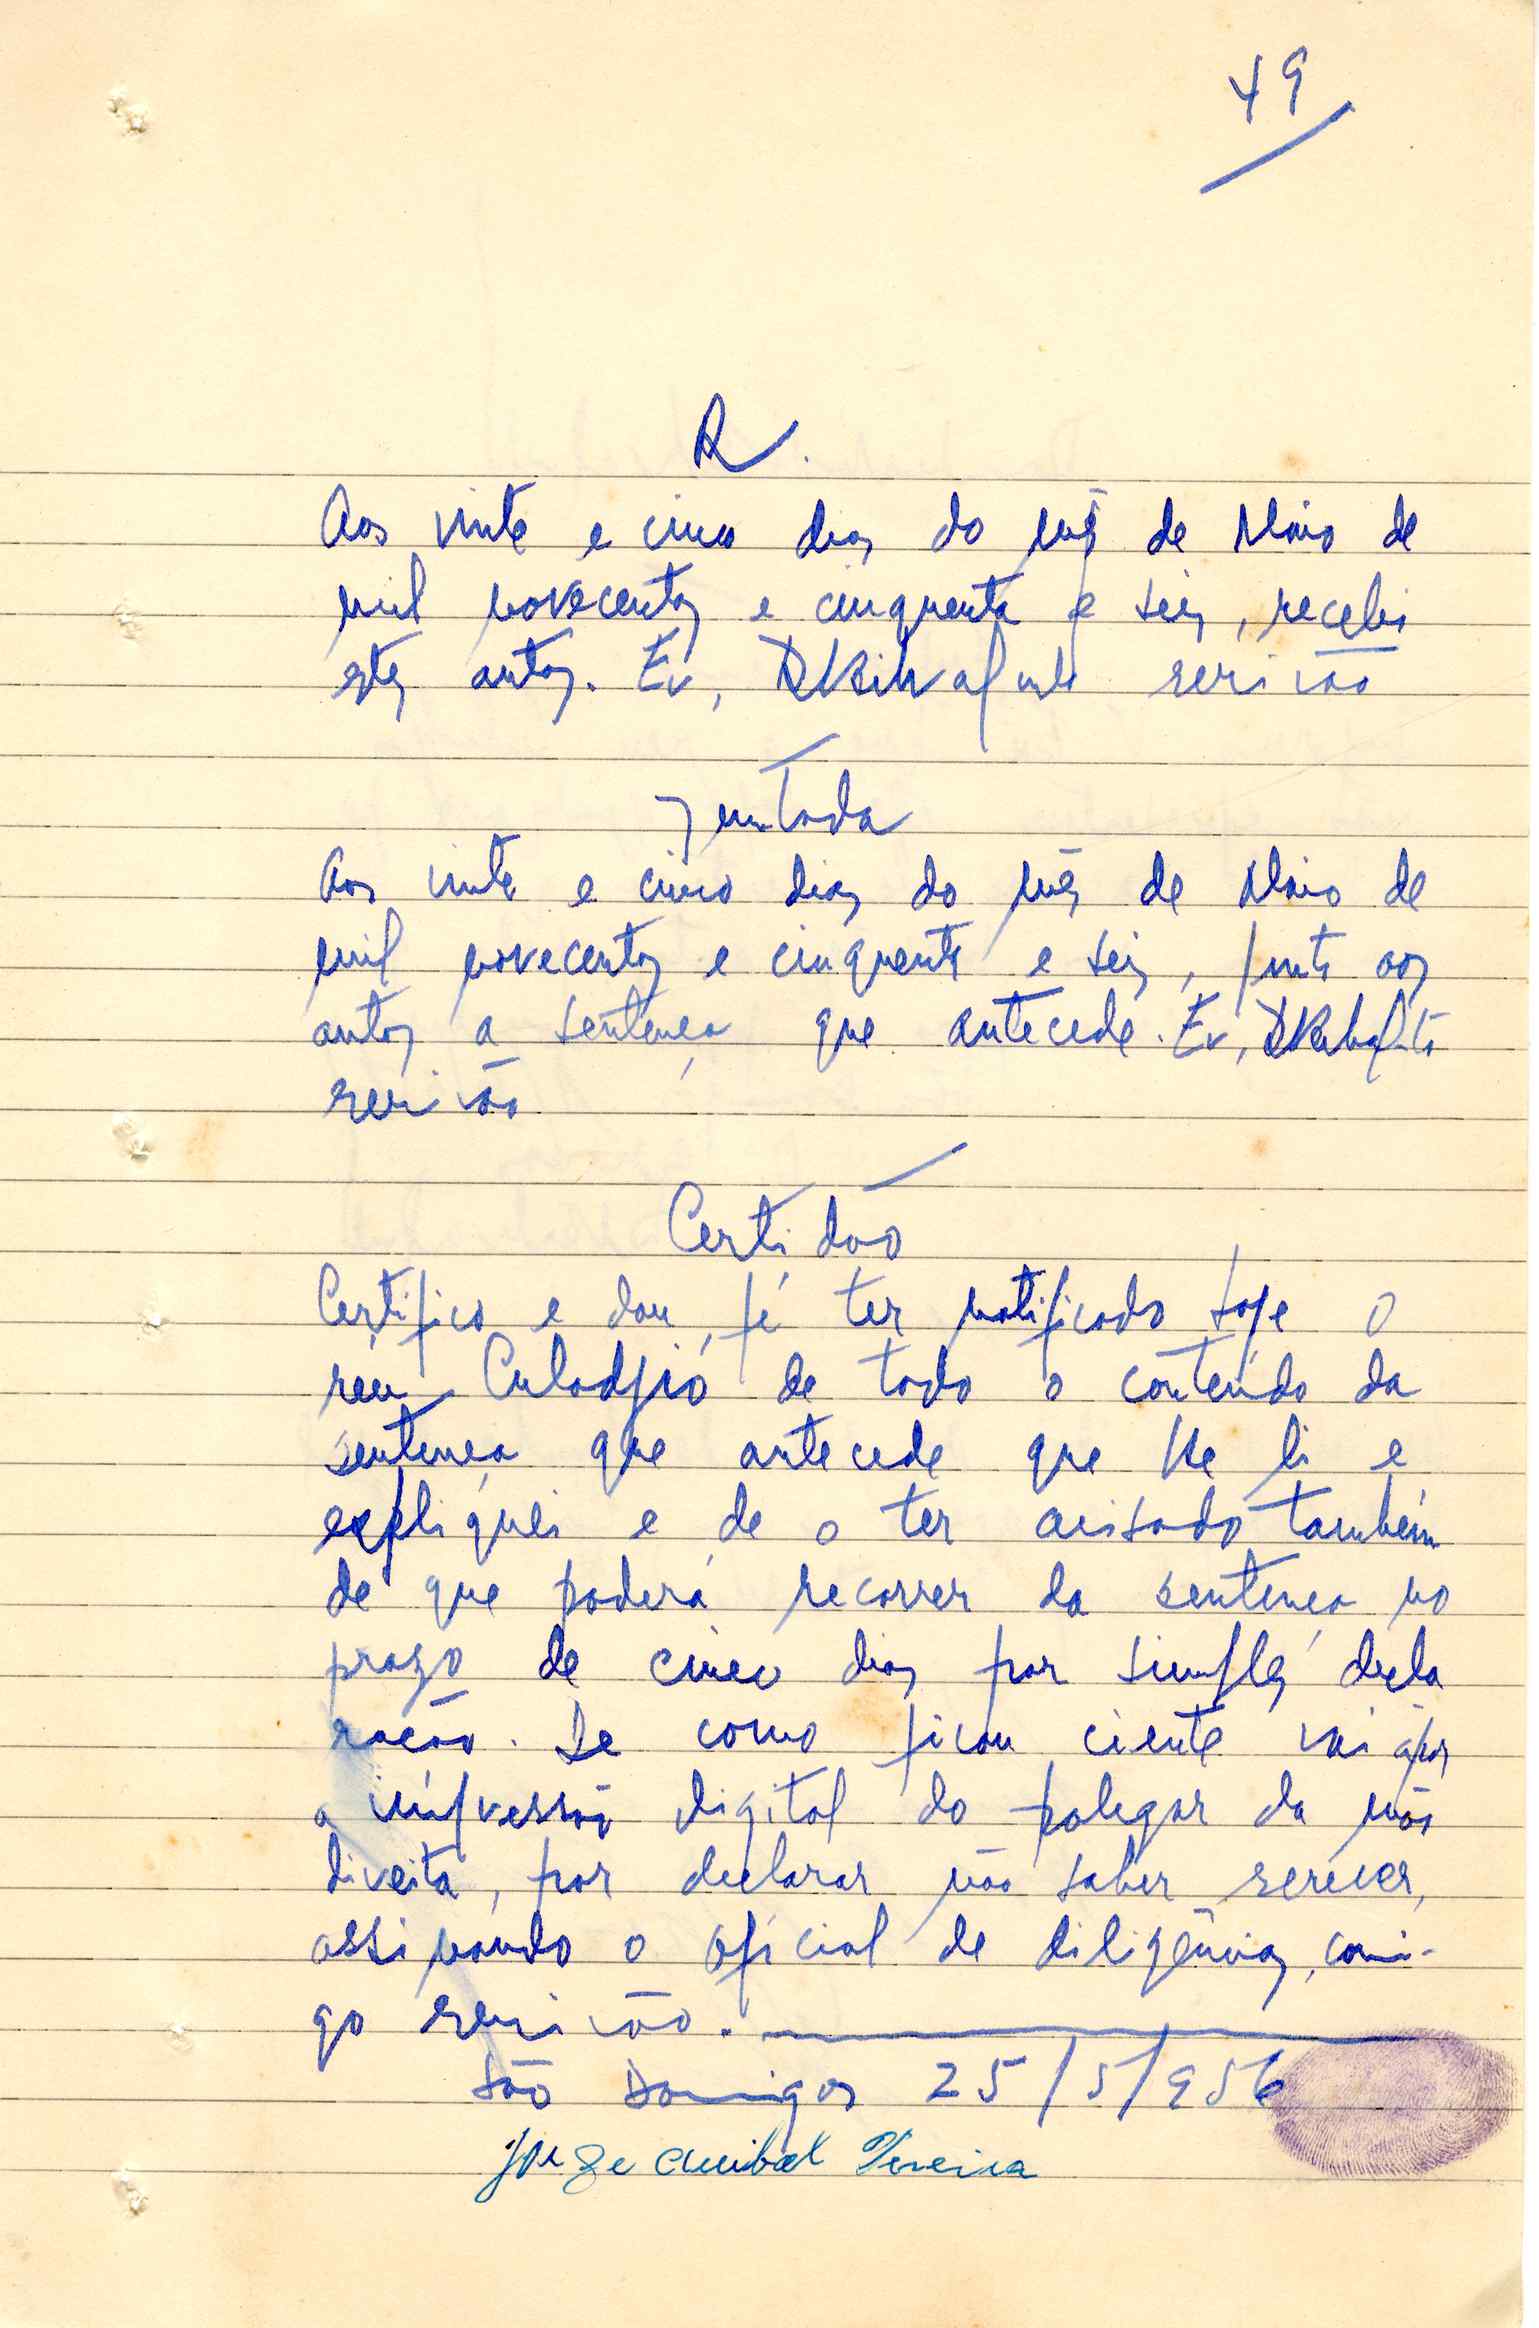 49
R.
Aos vinte e cinco dias do mês de Maio de
mil novecentos e cinquenta e seis, recebi
estes autos. Eu, escrivão
Juntada
Aos vinte e cinco dias do mês de Maio de
mil novecentos e cinquenta e seis, junto aos
autos a sentença que antecede. Eu,
escrivão
Certidão
Certifico e dou fé ter notificado hoje o
réu Culadjió de todo o conteúdo da
sentença que antecede que lhe li e
expliquei e de o ter avisado também
de que poderá recorrer da sentença no
prazo de cinco dias por simples decla
ração. De como ficou ciente vai apor
a impressão digital do polegar da mão
direita, por declarar não saber escrever,
assinando o oficial de diligências, comi-
go escrivão.
São Domingos 25/5/956
Jorge Anibal Pereira